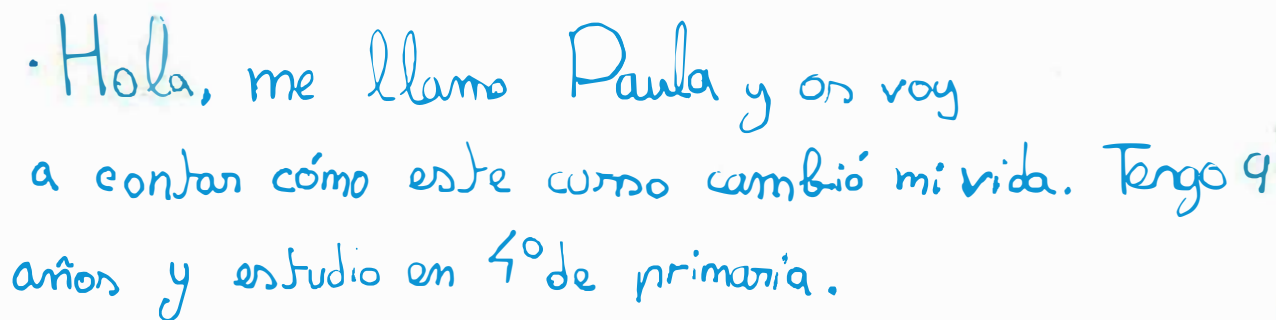 ·Hola, me llamo Paula y os voy
a contar cómo este curso cambió mi vida. Tengo 9
años y estudio en 4º de primaria.